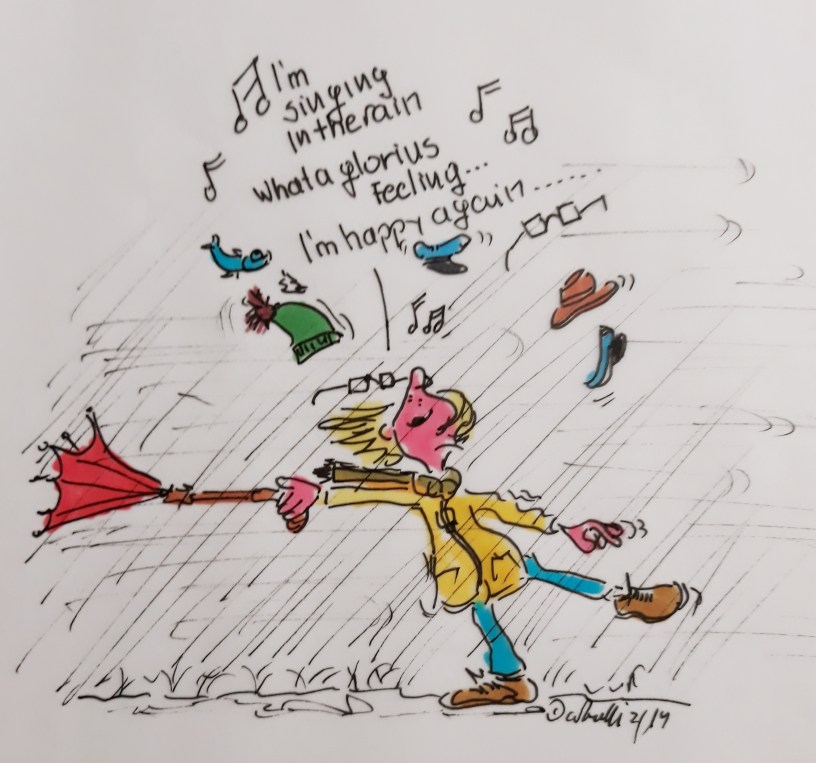 I'm
singing
in the rain
What a glorius
Feeling...
I'm happy again.......
2/19